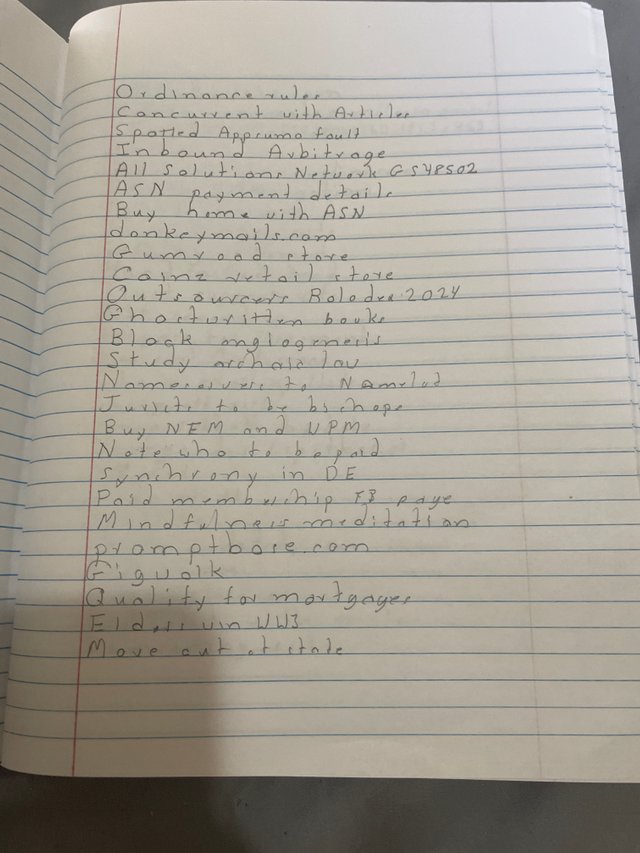 Ordinance rules
Concurrent with Articles
Spotted Appruma fault
Inbound Arbitrage
All Solutions Network GS48502
ASN payment details
Buy home with ASN
donkeymails.com
Gumroad store
Coinz retail store
Outsourcers Rolodex 2024
Ghostwritten books
Block angiogenesis
Study archaic law
Nameservers to
Jurists to be bishops
Buy NEM and UPM
Note who to be paid
Synchrony in DE
Paid membership FB page
Mindfulness meditation
promptbase.com
Gigwalk
Qualify for mortgages
Elders win WW3
Move out of state